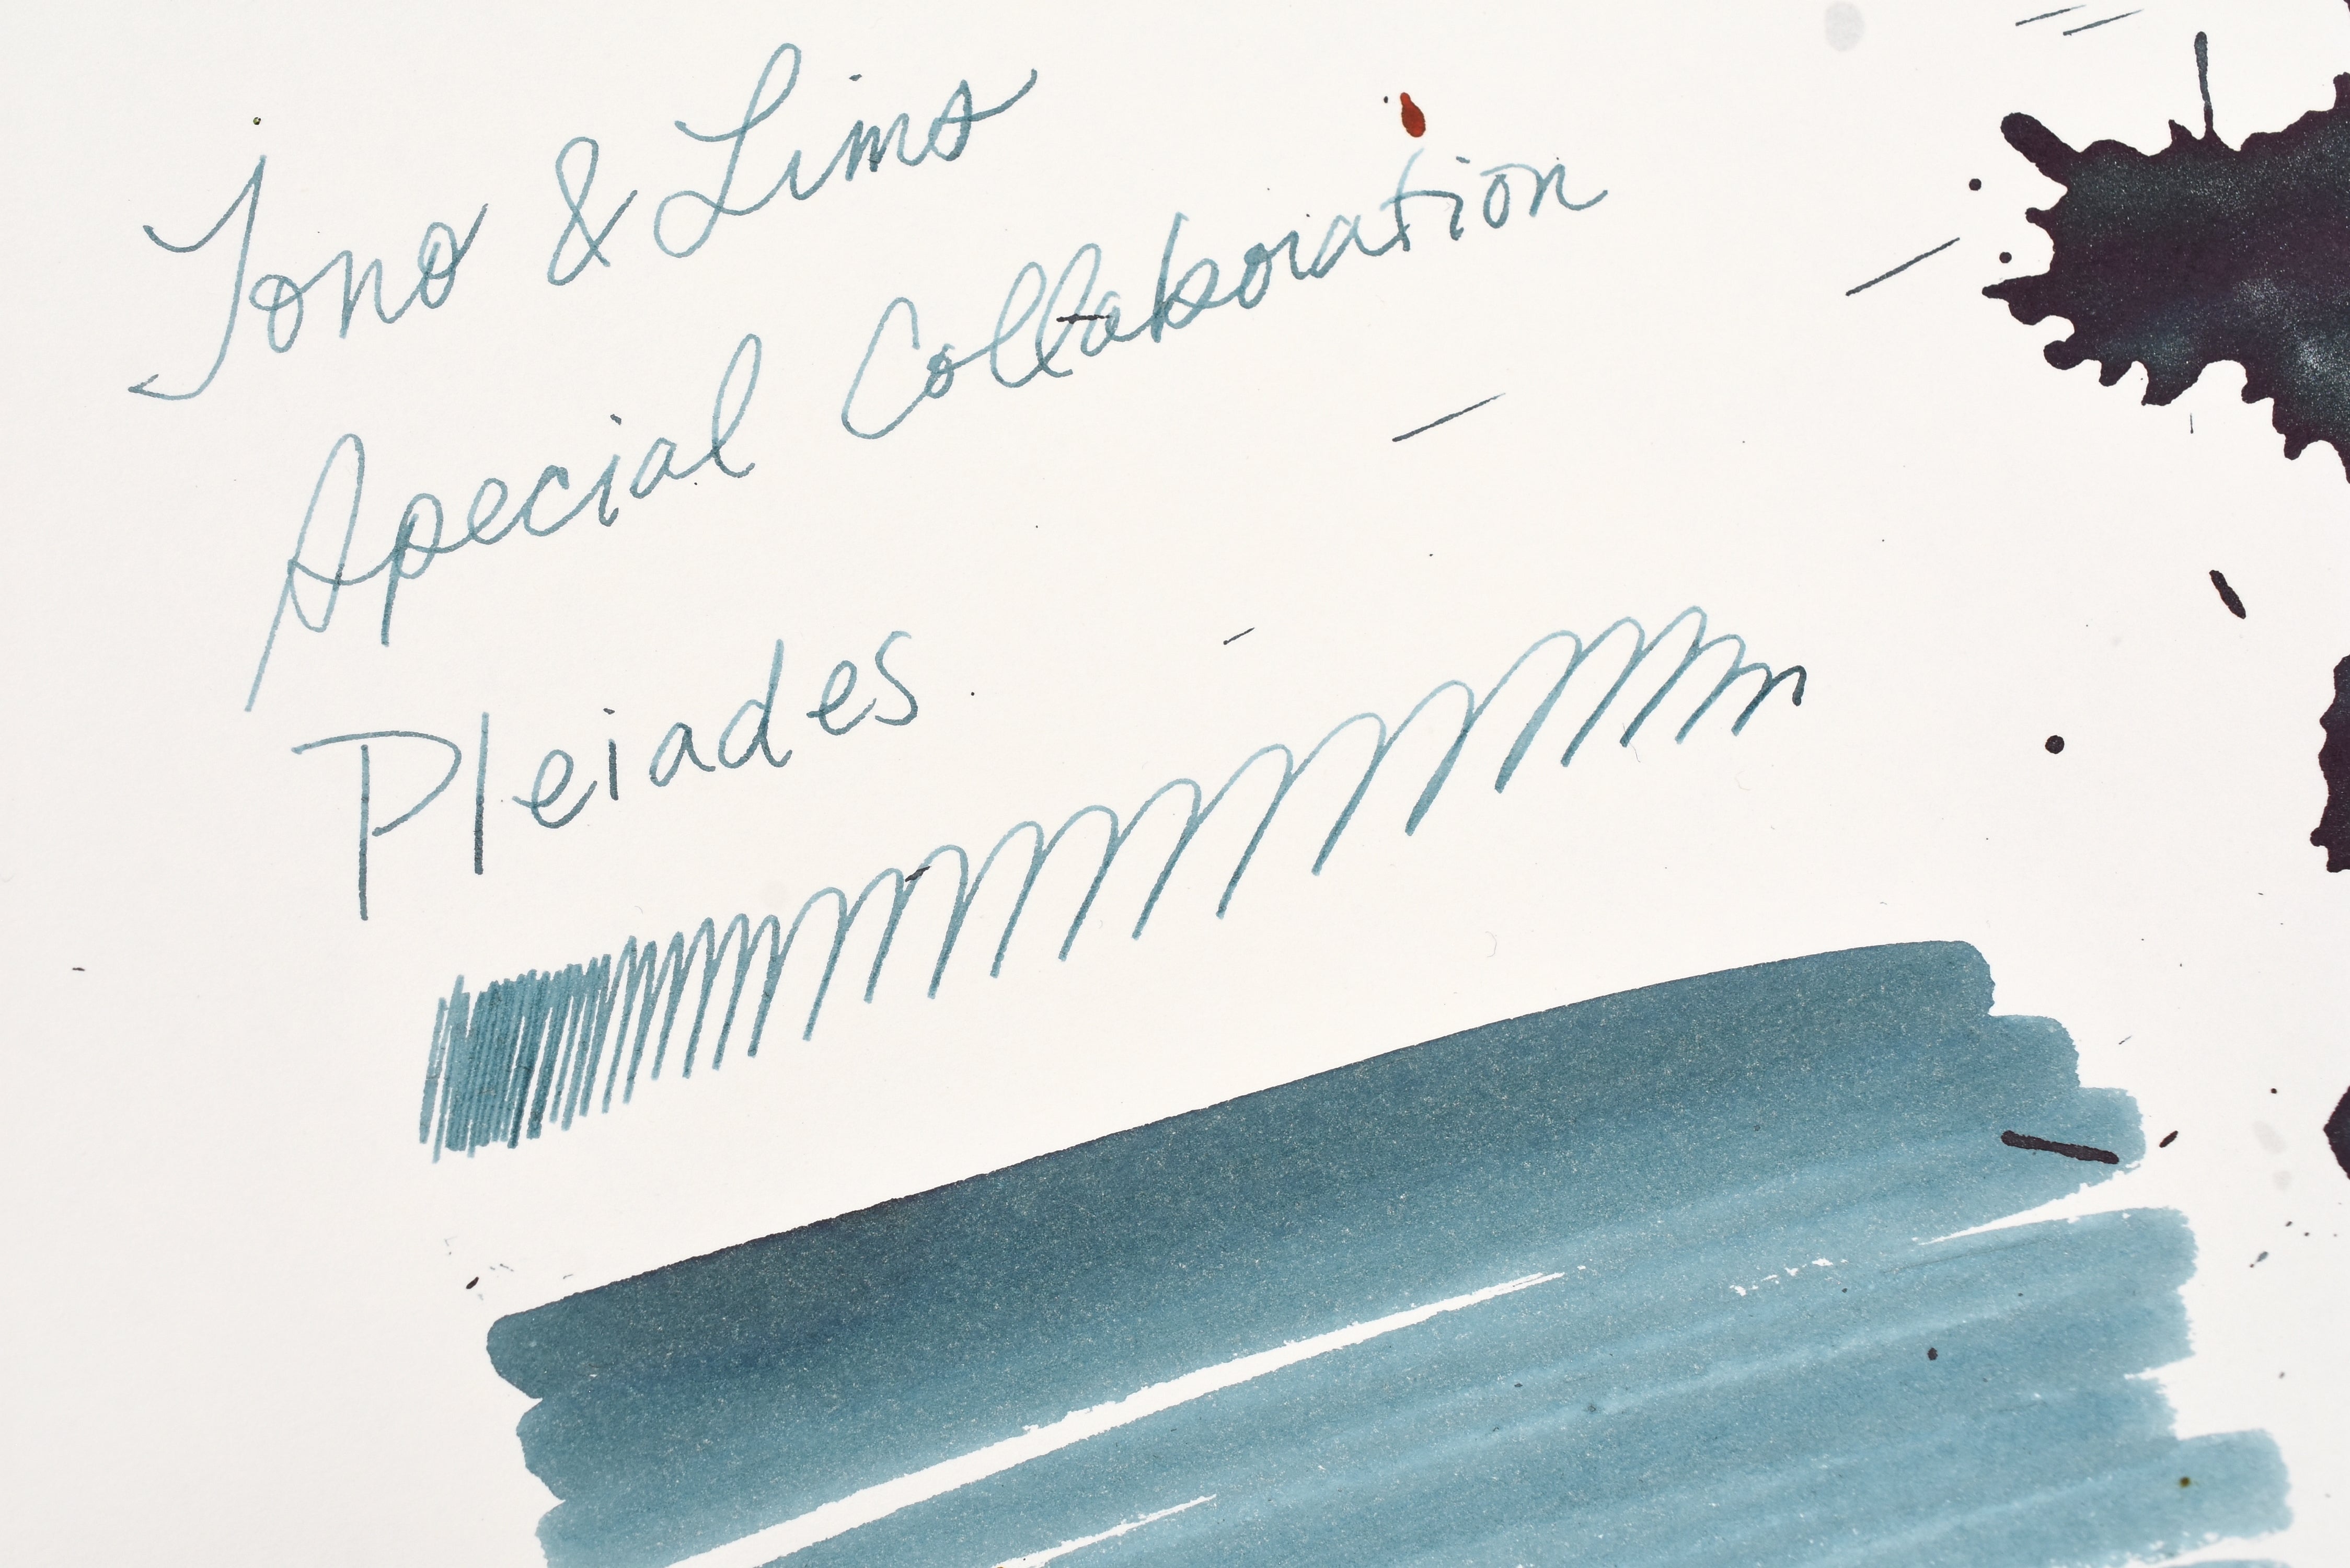 Tono & Lims
Special Collaboration
Pleiades